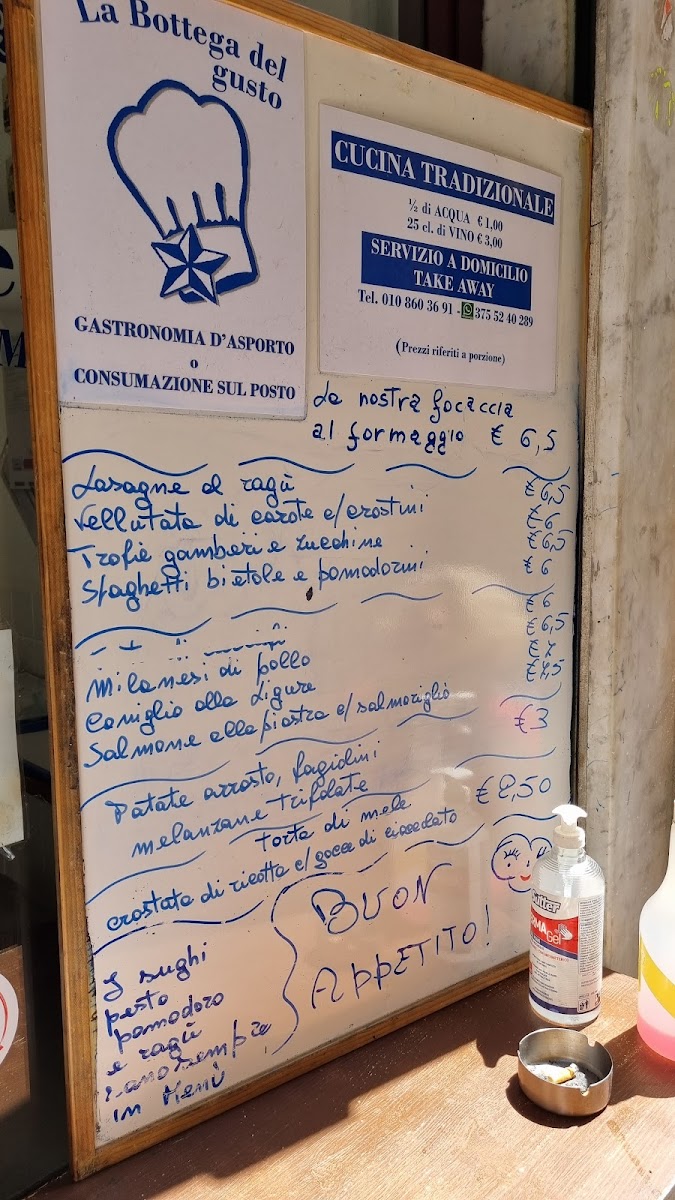 La Bottega del
gusto
GASTRONOMIA D'ASPORTO
o
CONSUMAZIONE SUL POSTO
CUCINA TRADIZIONALE
½ di ACQUA € 1,00
25 cl. di VINO € 3,00
SERVIZIO A DOMICILIO
TAKE AWAY
Tel. 010 860 36 91 - 375 52 40 289
(Prezzi riferiti a porzione)
La nostra focaccia
al formaggio € 6,5
Lasagne al ragù € 6,5
Vellutata di carote c/crostini € 6
Trofie gamberi e zucchine € 6,5
Spaghetti bietole e pomodorini € 6
€ 6
Milanesi di pollo € 6,5
Coniglio alla Ligure € 7
Salmone alla piastra c/ salmoriglio € 7,5
Patate arrosto, fagiolini € 3
melanzane trifolate
torta di mele € 2,50
crostata di ricotta c/gocce di cioccolato
I sughi
pesto
pomodoro
e ragù
sono sempre
in Menù
BUON
APPETITO!
GEL